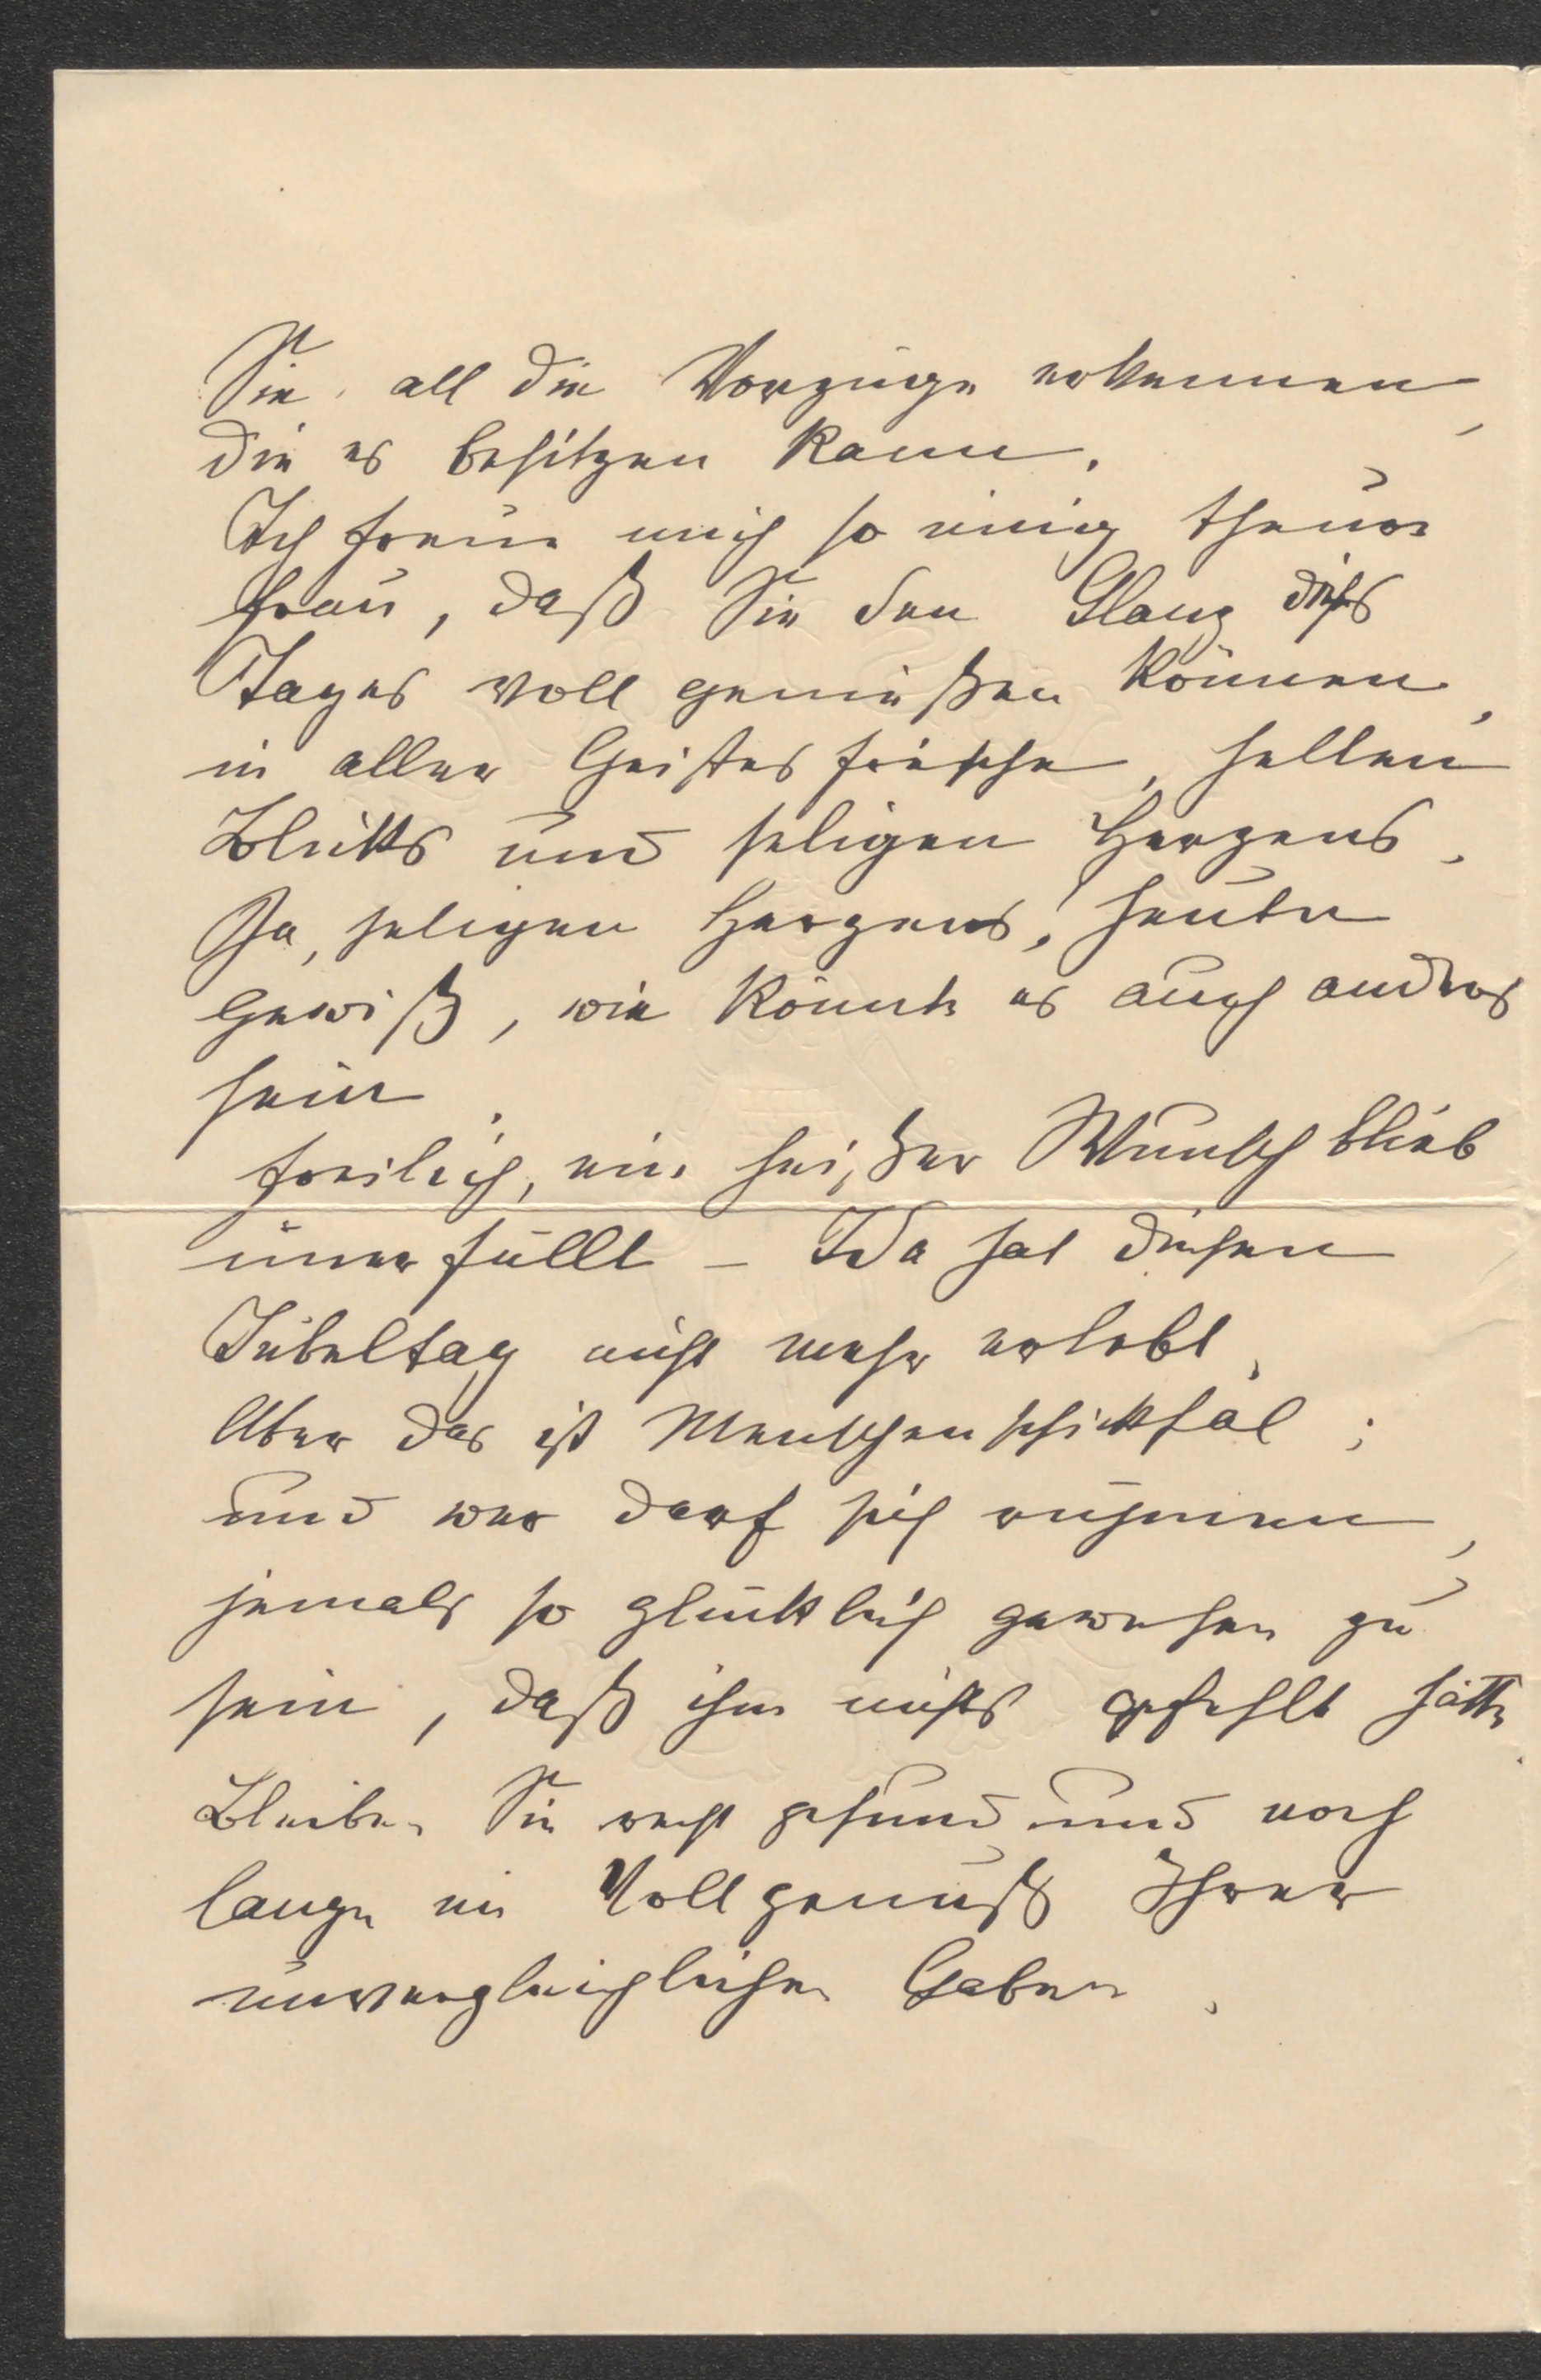 Sie all die Vorzüge erkennen,
die es besitzen kann.
Ich freue mich so innig theure
Frau, daß Sie den Glanz dieses
Tages voll genießen können,
in aller Geistesfrische, hellen
Blicks und seligen Herzens.
Ja, seligen Herzens! heute
gewiß, wie könnte es auch anders
sein.
Freilich, ein heißer Wunsch blieb
unerfüllt – Ida hat diesen
Jubeltag nicht mehr erlebt.
Aber das ist Menschenschicksal;
und wer darf sich rühmen,
jemals so glücklich gewesen zu
sein, daß ihm nichts gefehlt hätte.
Bleiben Sie recht gesund und noch
lange im Vollgenuß Ihrer
unvergleichlichen Gaben.